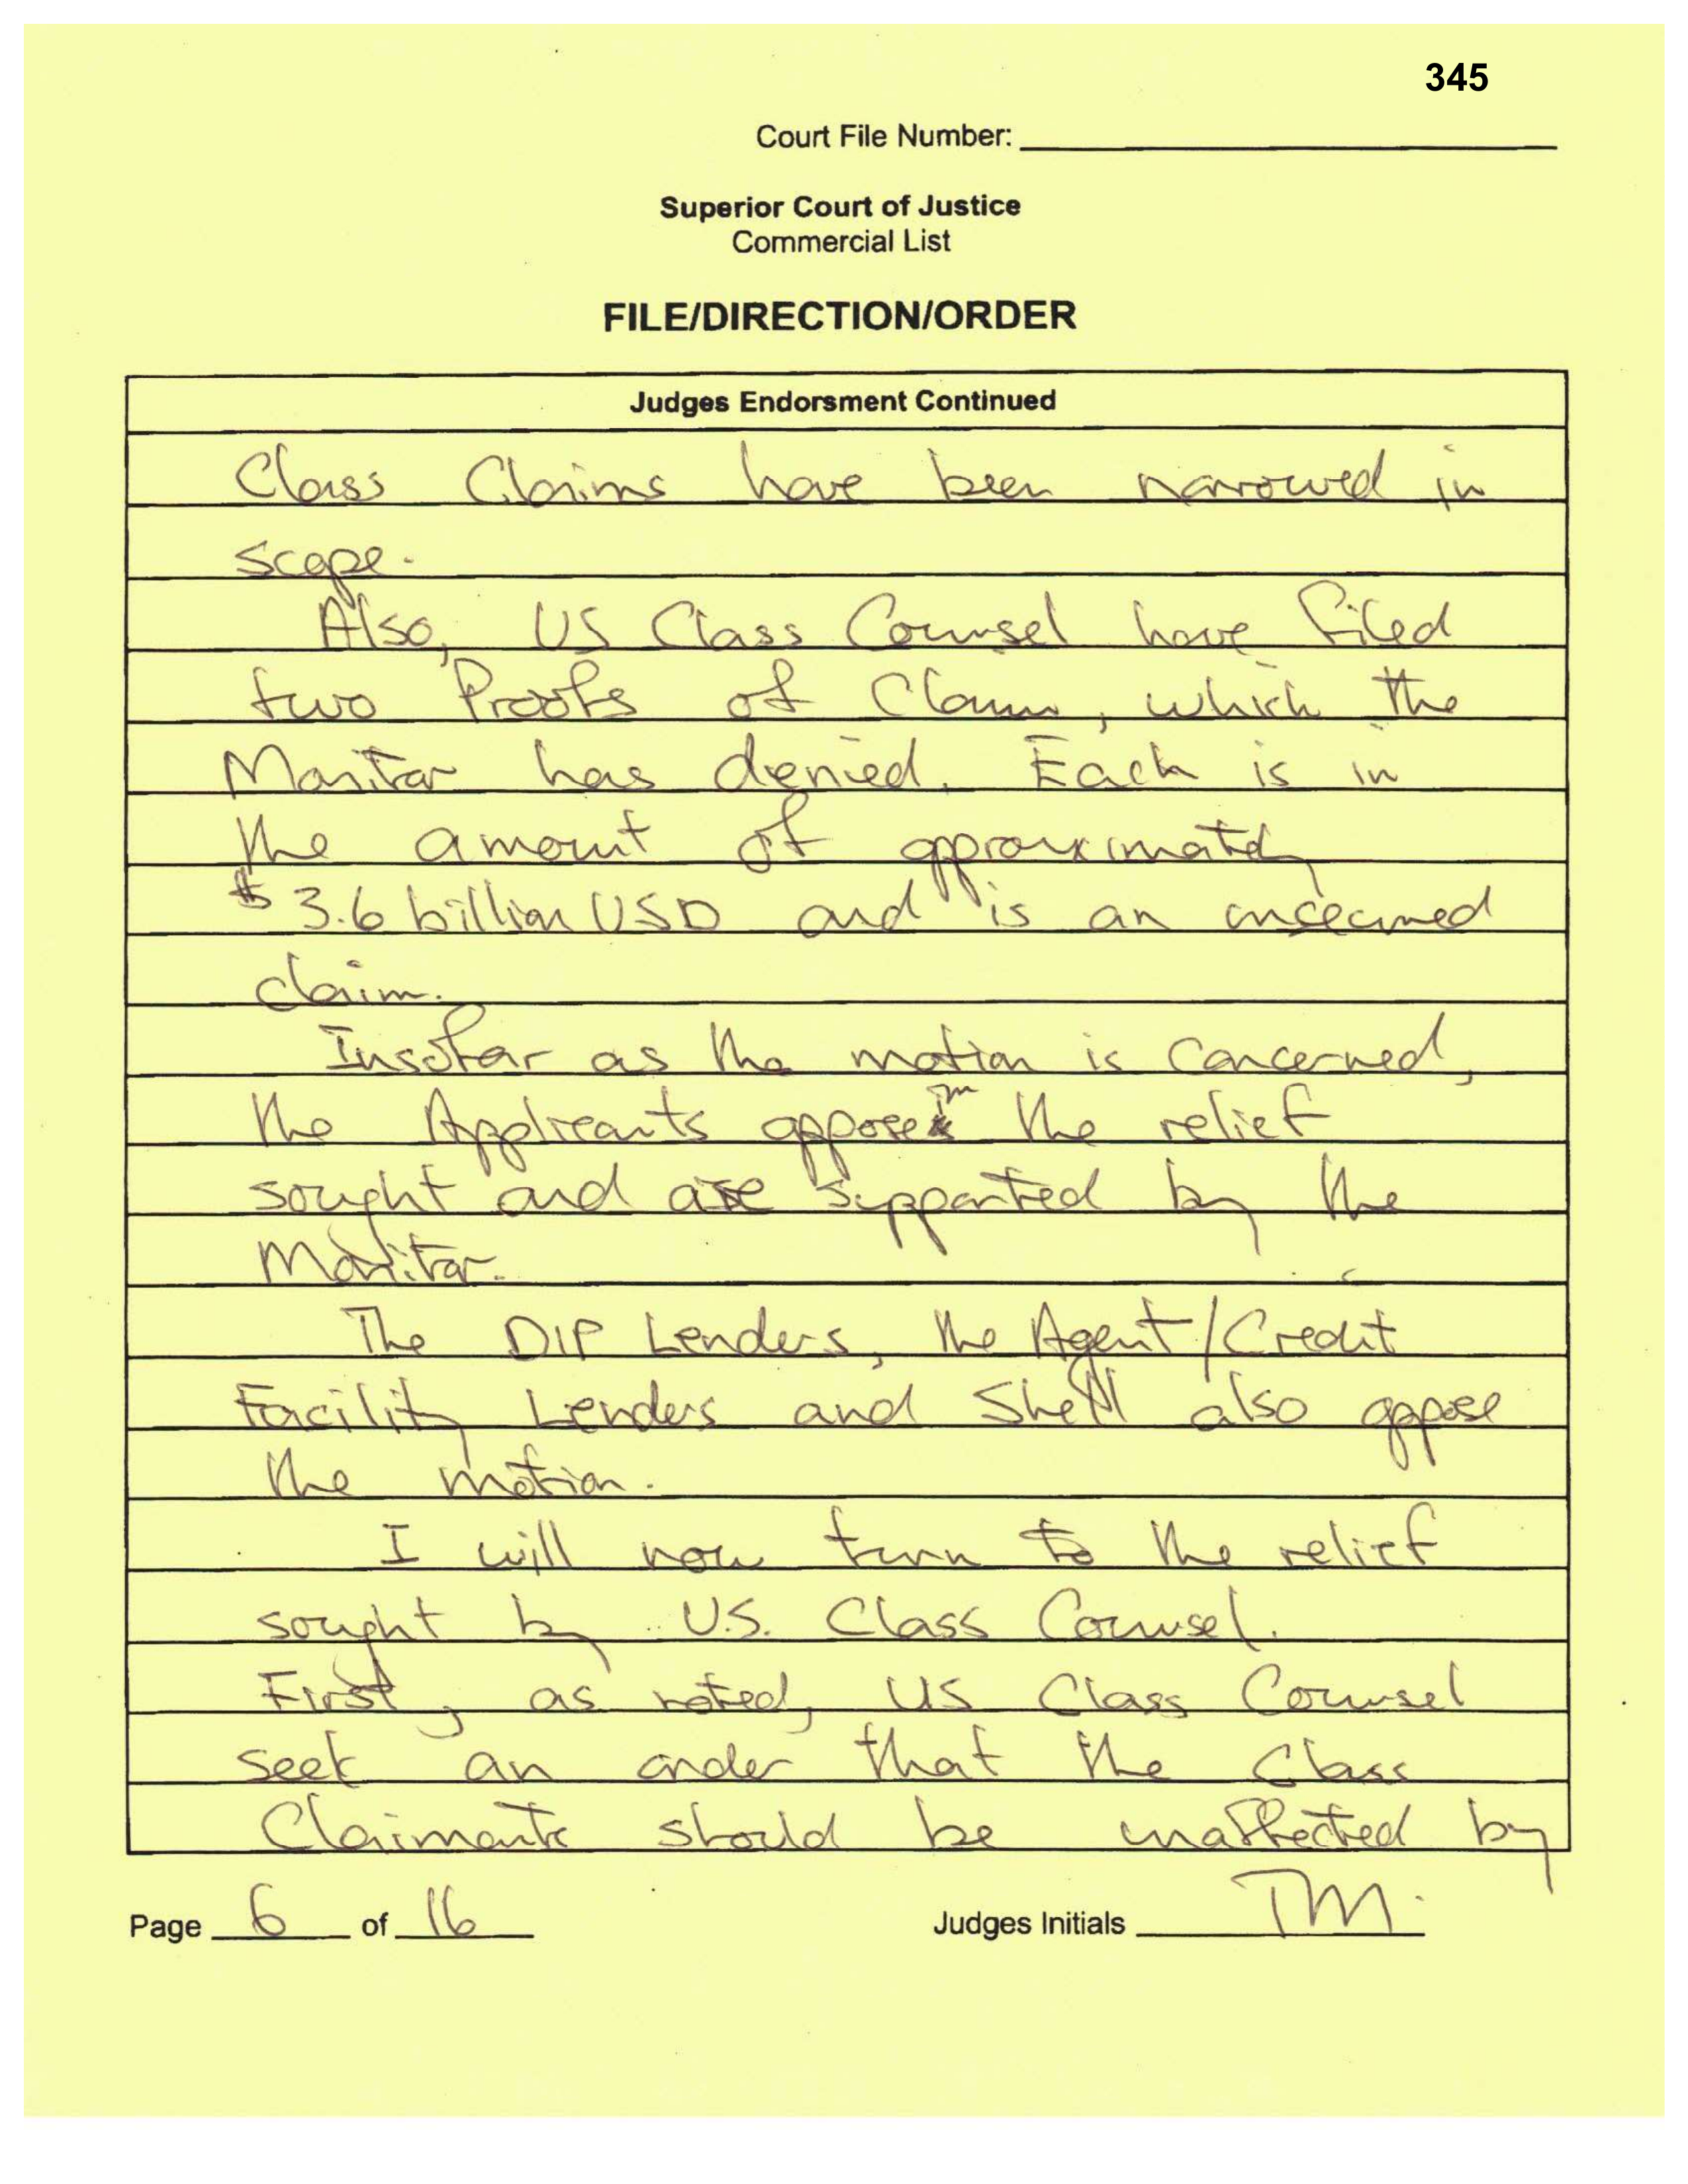 345
Court File Number:
Superior Court of Justice
Commercial List
FILE/DIRECTION/ORDER
Judges Endorsment Continued
Class Claims have been narrowed in
scope.
Also, US Class Counsel have filed
two Proofs of Claim, which the
Monitor has denied. Each is in
the amount of approximately
$3.6 billion USD and is an unsecured
claim.
Insofar as the motion is concerned,
the Applicants oppose the relief
sought and are supported by the
Monitor.
The DIP Lenders, the Agent/Credit
Facility Lenders and Shell also oppose
the motion.
I will now turn to the relief
sought by U.S. Class Counsel.
First, as noted, US Class Counsel
seek an order that the Class
Claimants should be unaffected by
Page 6 of 16 Judges Initials TM.